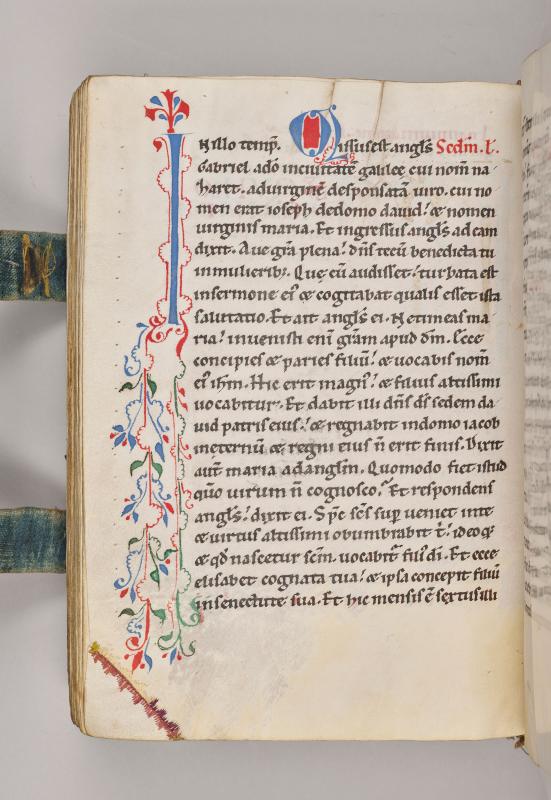 IN illo temp̄. Missus est angl̄s Scdm̄. L̄.
Gabriel adō inciuitatē galilee cui nom̄ na
zareth. aduirginē desponsatā uiro. cui no
men erat ioseph dedomo dauid! & nomen
uirginis maria. Et ingressus angl̄s ad eam
dixit. Aue gr̄a plena! dn̄s tecū benedicta tu
in mulierib;. Que cū audisset! turbata est
insermone ei' & cogitabat qualis esset ista
salutatio. Et ait angl̄s ei. Ne timeas ma
ria! inuenisti eni gr̄am apud dm̄. Ecce
concipies & paries filiū! & uocabis nom̄
ei' ihm̄. Hic erit magn'! & filius altissimi
uocabitur. Et dabit illi dn̄s ds̄ sedem da
uid patris eius! & regnabit indomo iacob
ineternū & regni eius n̄ erit finis. Dixit
aūt maria adanglm̄. Quomodo fiet istud
qm̄o uirum n̄ cognosco. Et respondens
angl̄s! dixit ei. Sp̄c sc̄s sup ueniet inte
& uirtus altissimi obumbrabit t'! ideoq;
& qd̄ nascetur scm̄. uocabit̄ fili' dī. Et ecce
elisabet cognata tua! & ipsa concepit filiū
insenectute sua. Et hic mensis ē sextus illi